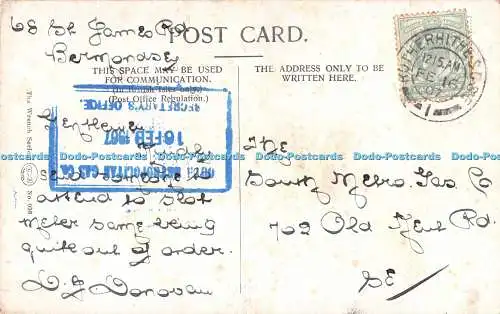 68 St James Rd
Bermondsey
POST CARD.
THIS SPACE MAY BE USED
FOR COMMUNICATION.
(In British Isles only)
(Post Office Regulation.)
THE ADDRESS ONLY TO BE
WRITTEN HERE.
ROTHERHITHE
12.15 AM
FE 16
07
The Wrench Series
No.
SECRETARY'S OFFICE.
16 FEB 1907
METROPOLITAN GAS CO.
Gentlemen
Kindly
send someone to
attend to slot
meter same being
quite out of order.
D. J. Donovan
The
South Metro. Gas Co
702 Old Kent Rd.
SE
Dodo-Postcards Dodo-Postcards Dodo-Postcards Dodo-Postcards Dodo-Postcards Dodo-Postcards